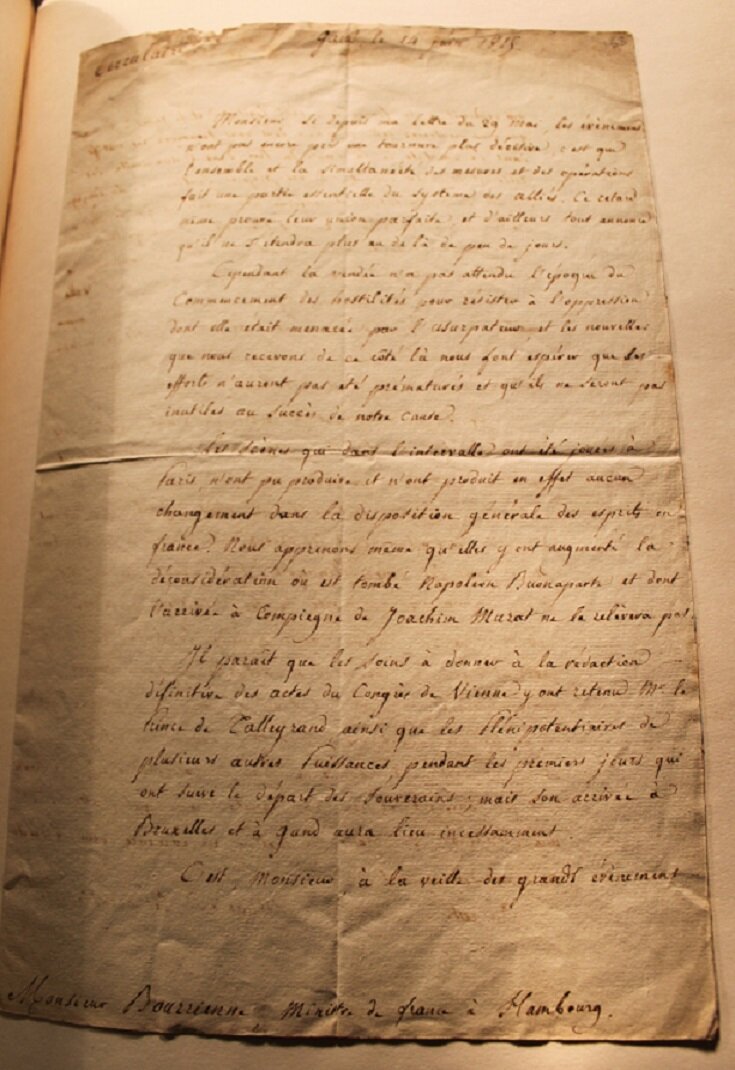 Circulaire
Gand le 14 juin 1815
Monsieur, si depuis ma lettre du 29 Mai, les évènemens
n'ont pas encore pris une tournure plus décisive, c'est que
l'ensemble et la simultanéité des mesures et des opérations
fait une partie essentielle du systeme des alliés. Ce retard
même prouve leur union parfaite et d'ailleurs tout annonce
qu'il ne s'étendra plus au de là de peu de jours.
Cependant la vendée n'a pas attendu l'époque du
Commencement des hostilités pour résister à l'oppression
dont elle était menacée par l'usurpateur et les nouvelles
que nous recevons de ce côté là nous font espérer que les
efforts n'auront pas été prématurés et qu'ils ne seront pas
inutiles au succès de notre cause.
Les scènes qui dans l'intervalle ont été jouées à
Paris n'ont pu produire et n'ont produit en effet aucun
changement dans la disposition générale des esprits en
france. Nous apprenons même qu'elles y ont augmenté la
déconsidération où est tombé Napoléon Buonaparte et dont
l'arrivée à Compiegne de Joachim Murat ne le relèvera pas.
Il paraît que les soins à donner à la rédaction
définitive des actes du Congrès de Vienne y ont retenu Mr. le
Prince de Talleyrand ainsi que les Plénipotentiaires de
plusieurs autres Puissances, pendant les premiers jours qui
ont suivi le départ des Souverains; mais son arrivée à
Bruxelles et à Gand aura lieu incessamment.
C'est, Monsieur à la veille des grands évènements
Monsieur Bourrienne Ministre de france à Hambourg.